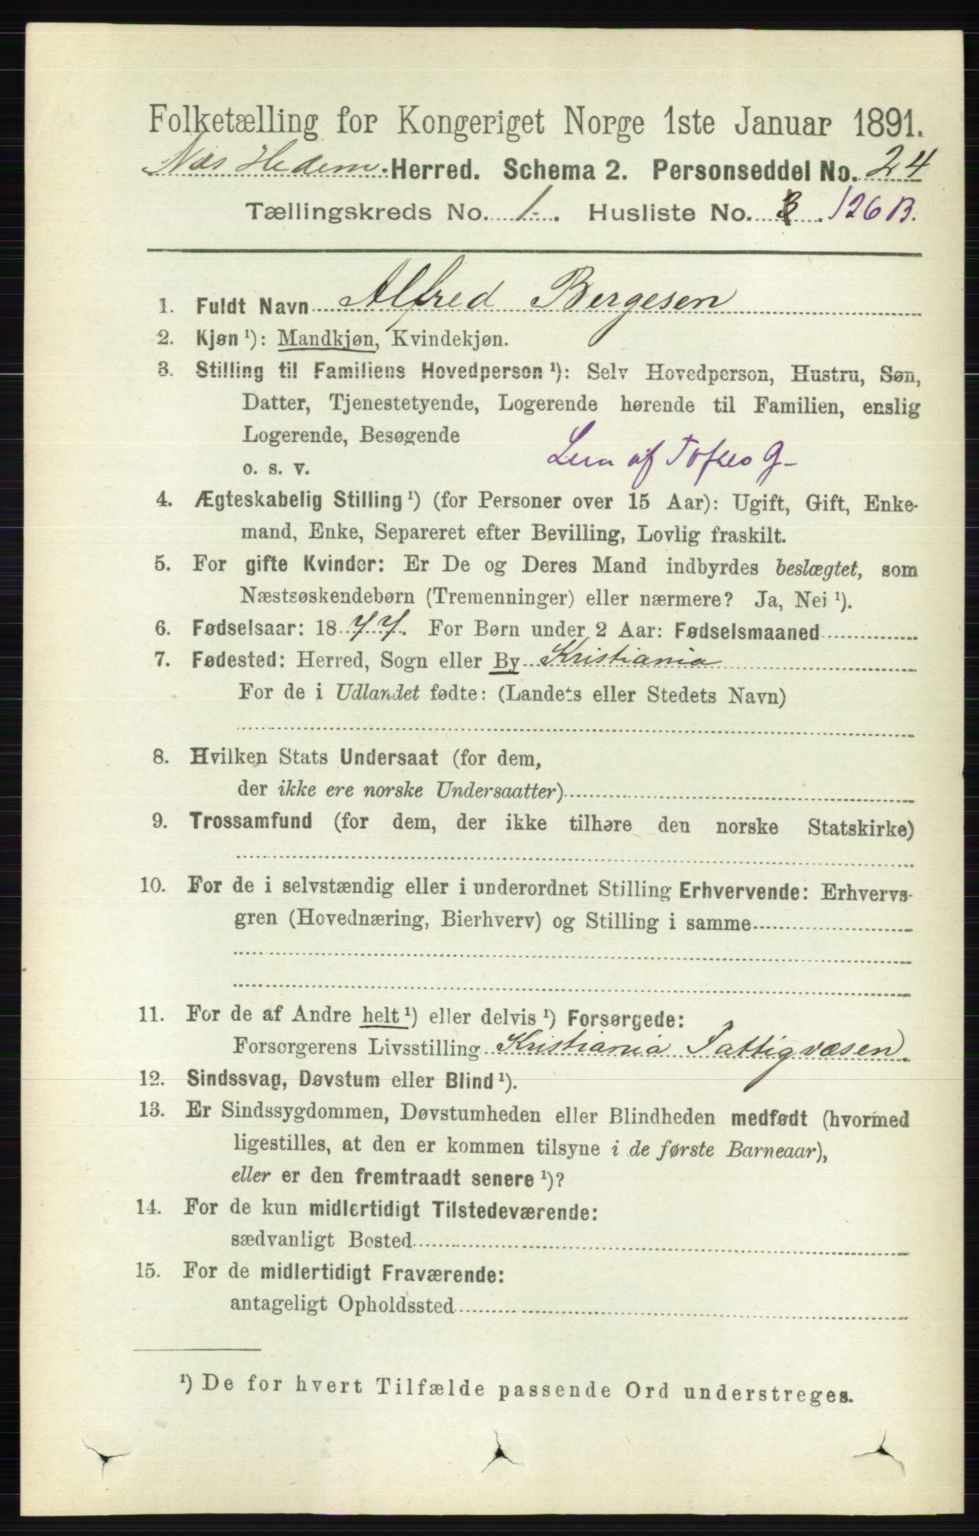 Folketælling for Kongeriget Norge 1ste Januar 1891.
Næs Hedem. Herred. Schema 2. Personseddel No. 24
Tællingskreds No. 1. Husliste No. 3. 126 B.
1. Fuldt Navn Alfred Bergesen
2. Kjøn ¹): Mandkjøn, Kvindekjøn.
3. Stilling til Familiens Hovedperson ¹): Selv Hovedperson, Hustru, Søn,
Datter, Tjenestetyende, Logerende hørende til Familien, enslig
Logerende, Besøgende
o. s. v. af
4. Ægteskabelig Stilling ¹) (for Personer over 15 Aar): Ugift, Gift, Enke-
mand, Enke, Separeret efter Bevilling, Lovlig fraskilt.
5. For gifte Kvinder: Er De og Deres Mand indbyrdes beslægtet, som
Næstsøskendebørn (Tremenninger) eller nærmere? Ja, Nei ¹).
6. Fødselsaar: 1877. For Børn under 2 Aar: Fødselsmaaned
7. Fødested: Herred, Sogn eller By Kristiania
For de i Udlandet fødte: (Landets eller Stedets Navn)
8. Hvilken Stats Undersaat (for dem,
der ikke ere norske Undersaatter)
9. Trossamfund (for dem, der ikke tilhøre den norske Statskirke)
10. For de i selvstændig eller i underordnet Stilling Erhvervende: Erhvervs-
gren (Hovednæring, Bierhverv) og Stilling i samme
11. For de af Andre helt ¹) eller delvis ¹) Forsørgede:
Forsørgerens Livsstilling Kristiania Fattigvæsen.
12. Sindssvag, Døvstum eller Blind ¹).
13. Er Sindssygdommen, Døvstumheden eller Blindheden medfødt (hvormed
ligestilles, at den er kommen tilsyne i de første Barneaar),
eller er den fremtraadt senere ¹)?
14. For de kun midlertidigt Tilstedeværende:
sædvanligt Bosted
15. For de midlertidigt Fraværende:
antageligt Opholdssted
¹) De for hvert Tilfælde passende Ord understreges.